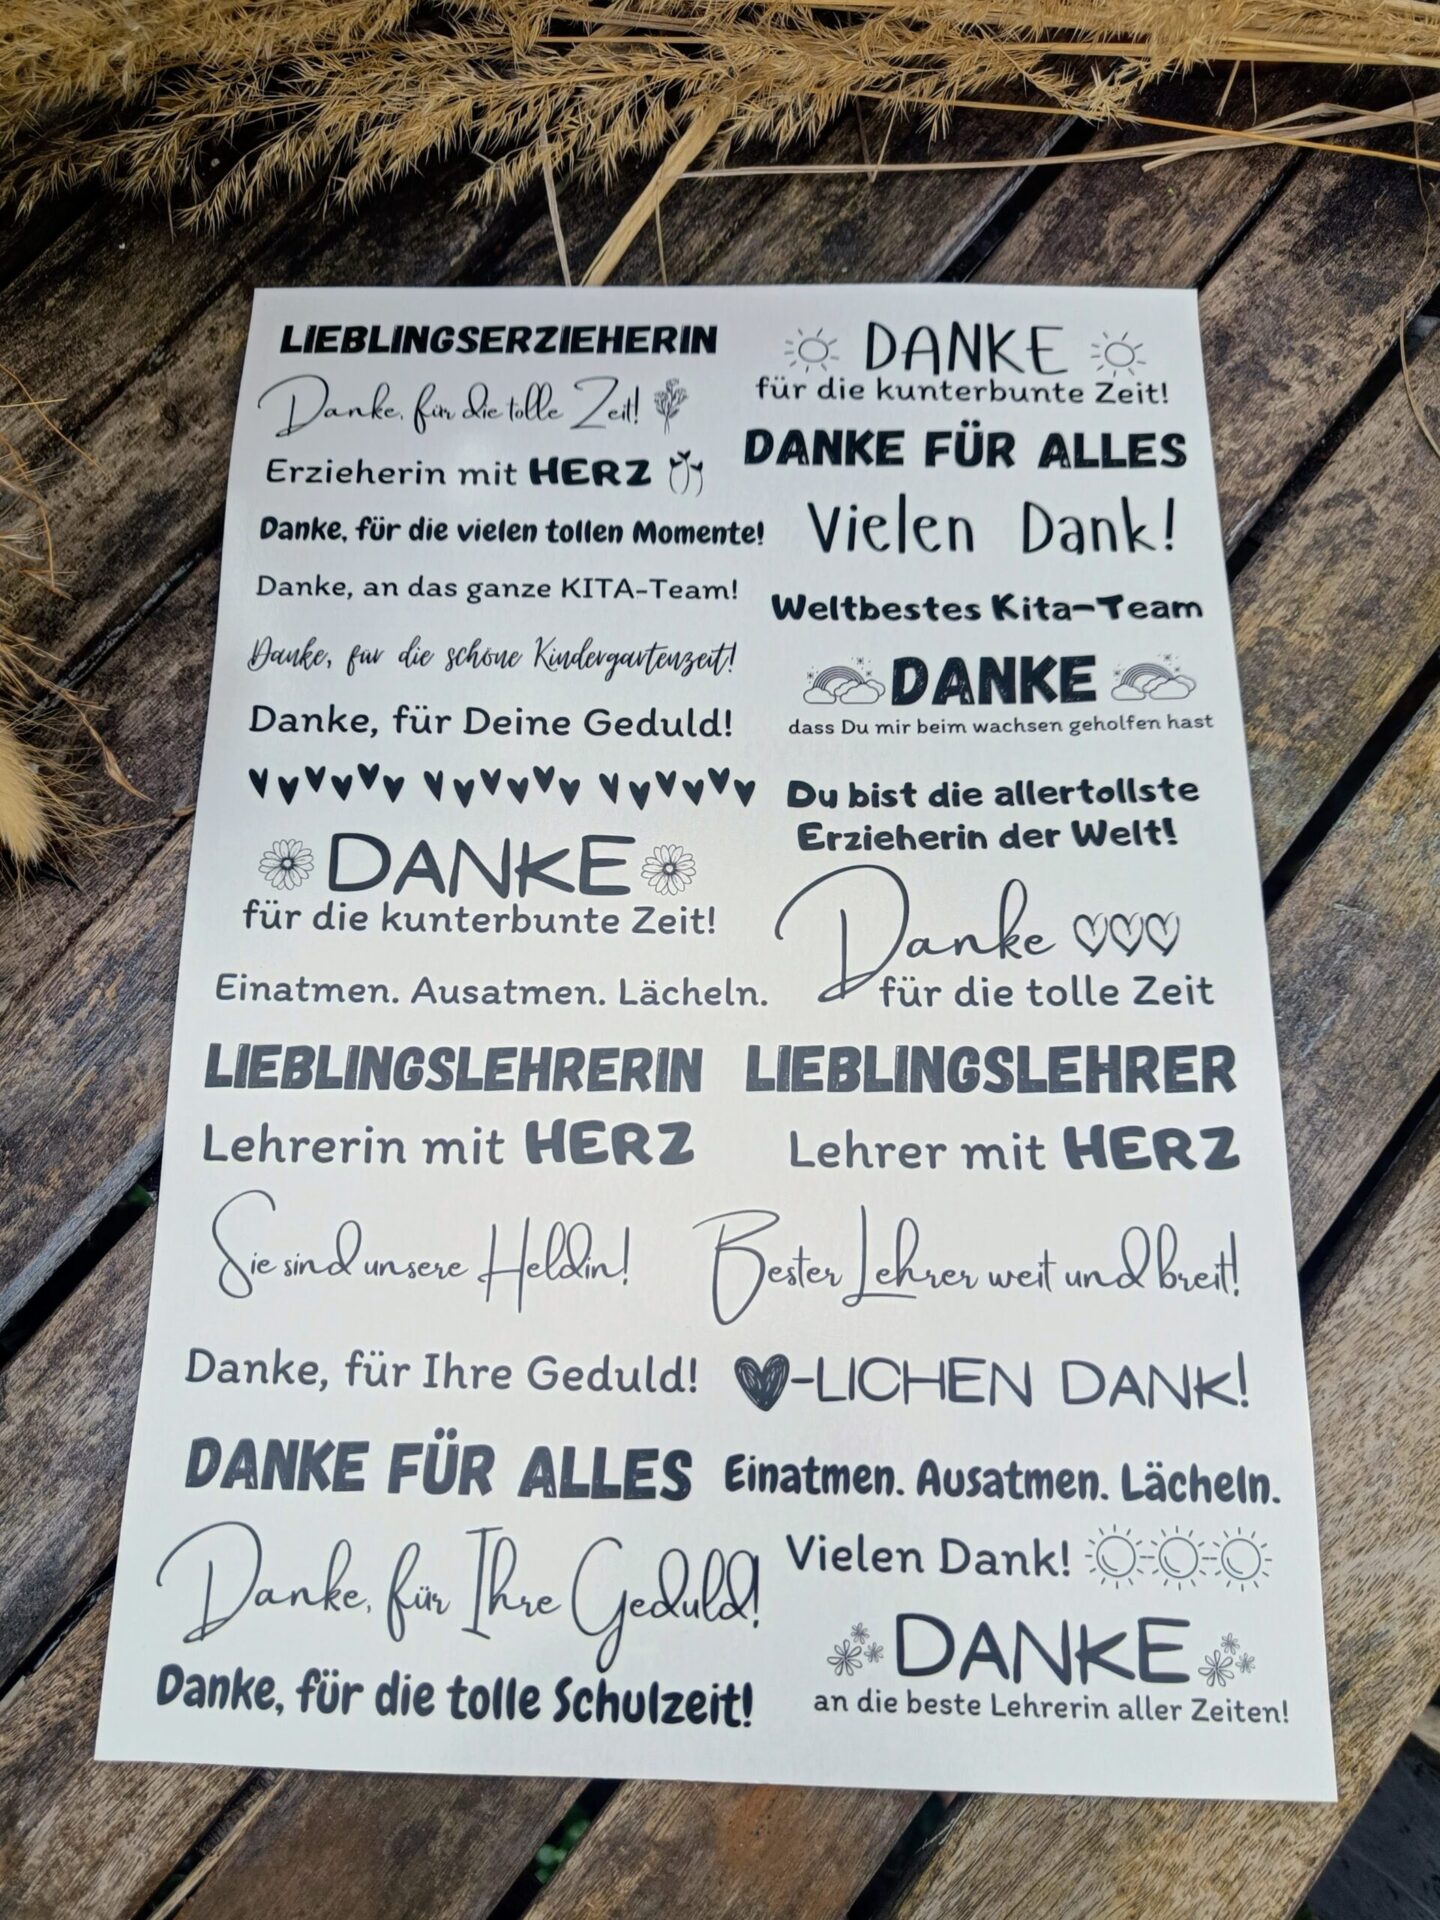 LIEBLINGSERZIEHERIN
Danke, für die tolle Zeit!
Erzieherin mit HERZ
Danke, für die vielen tollen Momente!
Danke, an das ganze KITA-Team!
Danke, für die schöne Kindergartenzeit!
Danke, für Deine Geduld!
DANKE
für die kunterbunte Zeit!
Einatmen. Ausatmen. Lächeln.
DANKE
für die kunterbunte Zeit!
DANKE FÜR ALLES
Vielen Dank!
Weltbestes Kita-Team
DANKE
dass Du mir beim wachsen geholfen hast
Du bist die allertollste
Erzieherin der Welt!
Danke
für die tolle Zeit
LIEBLINGSLEHRERIN
Lehrerin mit HERZ
Sie sind unsere Heldin!
Danke, für Ihre Geduld!
DANKE FÜR ALLES
Danke, für Ihre Geduld!
Danke, für die tolle Schulzeit!
LIEBLINGSLEHRER
Lehrer mit HERZ
Bester Lehrer weit und breit!
-LICHEN DANK!
Einatmen. Ausatmen. Lächeln.
Vielen Dank!
DANKE
an die beste Lehrerin aller Zeiten!